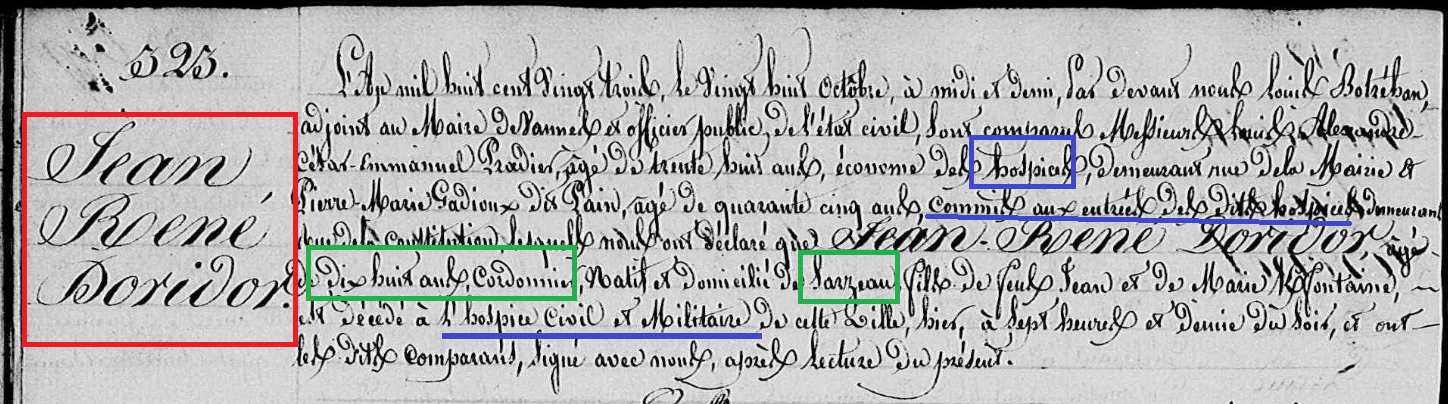 323.
Jean
René
Doridor.
L'An mil huit cent vingt trois, le vingt huit Octobre, à midi et demi, Par devant nous Louis Botréhan,
adjoint au Maire de Vannes et officier public, de l'état civil, Sont comparus Messieurs Louis Alexandre-
César-Emmanuel Pradier, âgé de trente huit ans, économe des hospices, demeurant rue de la Mairie et
Pierre-Marie Gadioux dit Pain, âgé de quarante cinq ans, commis aux entrées des dits hospices demeurant
rue de la constitution lesquels nous ont déclaré que Jean-René Doridor âgé
de dix huit ans, Cordonnier, Natif et domicilié de Sarzeau fils de feus Jean et de Marie
est décédé à l'hospice Civil et Militaire de cette Ville, hier, à Sept heures et demie du Soir, et ont
les dits comparans, signé avec nous, après lecture du présent.